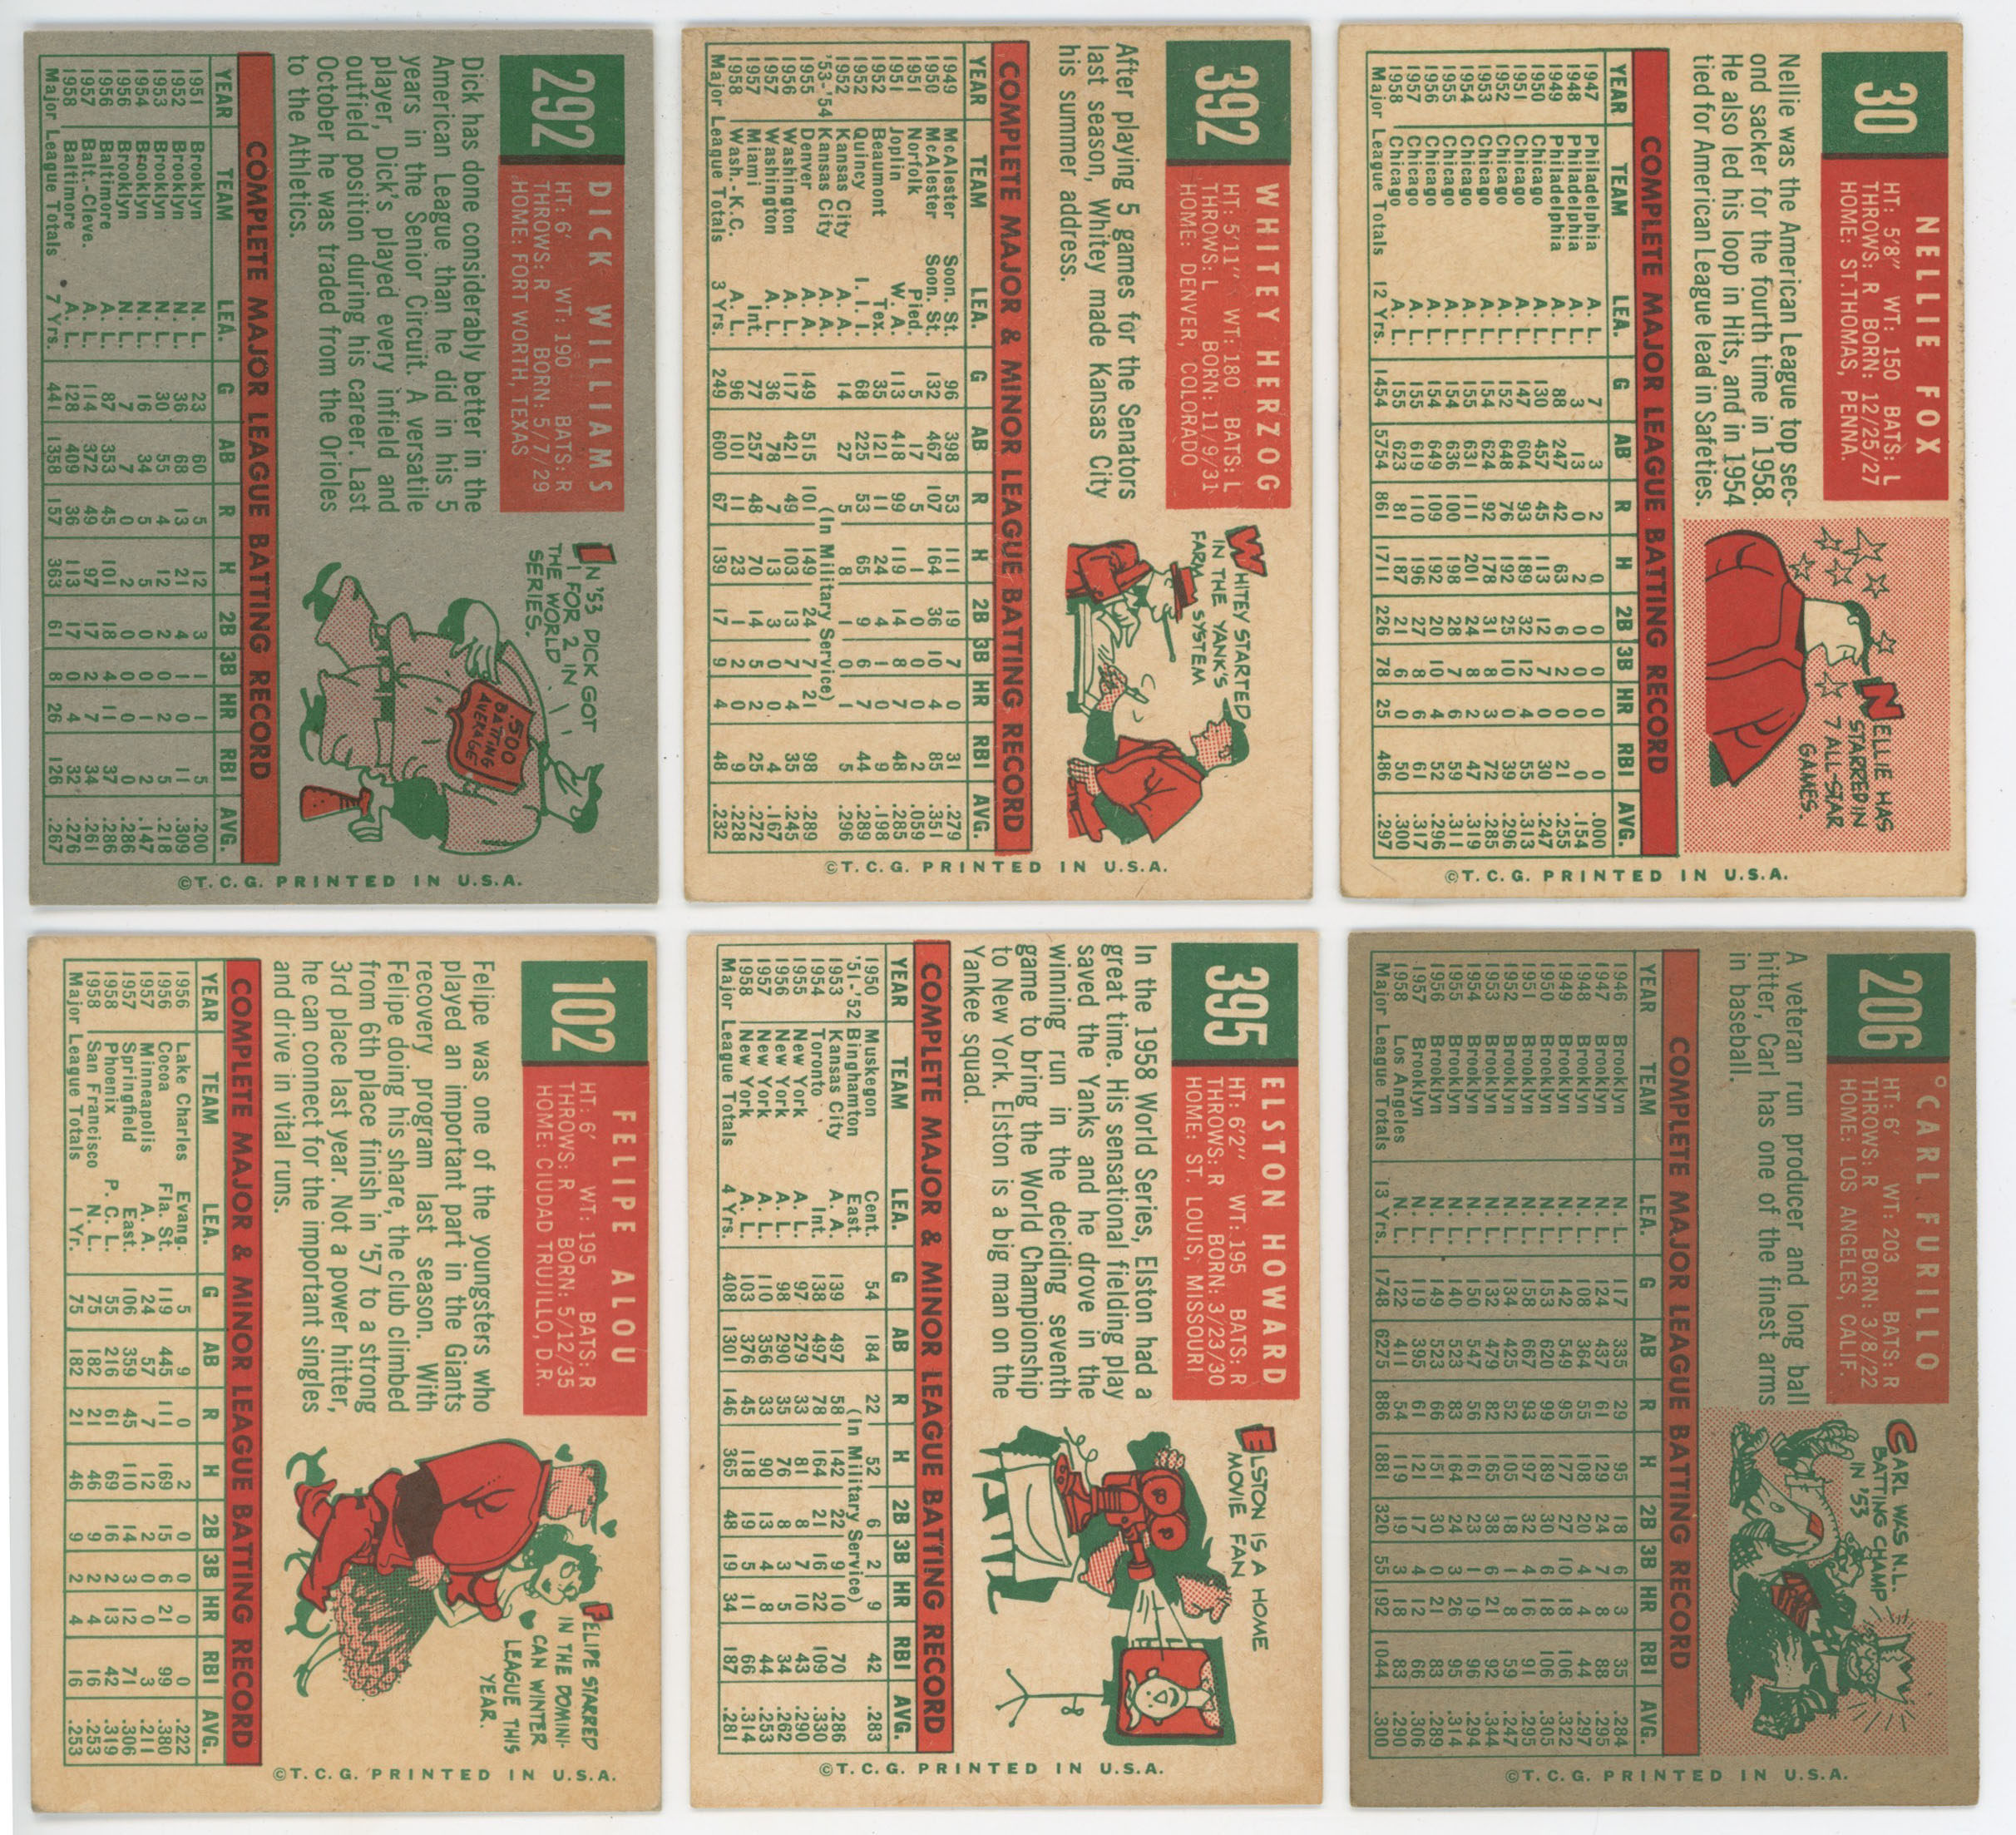 292
DICK WILLIAMS
HT: 6' WT: 190 BATS: R
THROWS: R BORN: 5/7/29
HOME: FORT WORTH, TEXAS
Dick has done considerably better in the
American League than he did in his 5
years in the Senior Circuit. A versatile
player, Dick's played every infield and
outfield position during his career. Last
October he was traded from the Orioles
to the Athletics.
IN '53 DICK GOT
1 FOR 2 IN
THE WORLD
SERIES.
.500
BATTING
AVERAGE
COMPLETE MAJOR LEAGUE BATTING RECORD
YEAR TEAM LEA. G AB R H 2B 3B HR RBI AVG.
1951 Brooklyn N. L. 23 60 5 12 3 1 1 5 .200
1952 Brooklyn N. L. 36 68 13 21 4 1 0 11 .309
1953 Brooklyn N. L. 30 55 4 12 2 0 2 5 .218
1954 Brooklyn N. L. 16 34 5 5 0 0 1 2 .147
1956 Brooklyn N. L. 7 7 0 2 0 0 0 0 .286
1956 Baltimore A. L. 87 353 45 101 18 4 11 37 .286
1957 Balt.-Cleve. A. L. 114 372 49 97 17 2 7 34 .261
1958 Baltimore A. L. 128 409 36 113 17 0 4 32 .276
Major League Totals 7 Yrs. 441 1358 157 363 61 8 26 126 .267
©T.C.G. PRINTED IN U.S.A.
392
WHITEY HERZOG
HT: 5'11" WT: 180 BATS: L
THROWS: L BORN: 11/9/31
HOME: DENVER, COLORADO
After playing 5 games for the Senators
last season, Whitey made Kansas City
his summer address.
WHITEY STARTED
IN THE YANK'S
FARM SYSTEM
COMPLETE MAJOR & MINOR LEAGUE BATTING RECORD
YEAR TEAM LEA. G AB R H 2B 3B HR RBI AVG.
1949 McAlester Soon. St. 96 398 53 111 19 7 0 31 .279
1950 McAlester Soon. St. 132 467 107 164 36 10 4 85 .351
1951 Norfolk Pied. 5 17 5 1 0 0 0 2 .059
1951 Joplin W. A. 113 418 99 119 14 8 7 48 .285
1952 Beaumont Tex. 35 121 11 24 4 1 0 9 .198
1952 Quincy I. I. I. 68 225 53 65 9 6 7 44 .289
1952 Kansas City A. A. 14 27 5 8 1 0 1 5 .296
'53-'54 Kansas City A. A. (In Military Service)
1955 Denver A. A. 149 515 101 149 24 7 21 98 .289
1956 Washington A. L. 117 421 49 103 13 7 4 35 .245
1957 Washington A. L. 36 78 7 13 3 0 0 4 .167
1957 Miami Int. 77 257 48 70 14 5 2 25 .272
1958 Wash.-K.C. A. L. 96 101 11 23 1 2 0 9 .228
Major League Totals 3 Yrs. 249 600 67 139 17 9 4 48 .232
©T.C.G. PRINTED IN U.S.A.
30
NELLIE FOX
HT: 5'8" WT: 150 BATS: L
THROWS: R BORN: 12/25/27
HOME: ST. THOMAS, PENNA.
Nellie was the American League top sec-
ond sacker for the fourth time in 1958.
He also led his loop in Hits, and in 1954
tied for American League lead in Safeties.
NELLIE HAS
STARRED IN
7 ALL-STAR
GAMES.
COMPLETE MAJOR LEAGUE BATTING RECORD
YEAR TEAM LEA. G AB R H 2B 3B HR RBI AVG.
1947 Philadelphia A. L. 7 3 2 0 0 0 0 0 .000
1948 Philadelphia A. L. 3 13 0 2 0 0 0 0 .154
1949 Philadelphia A. L. 88 247 42 63 6 2 0 21 .255
1950 Chicago A. L. 130 457 45 113 12 7 0 30 .247
1951 Chicago A. L. 147 604 93 189 32 12 4 55 .313
1952 Chicago A. L. 152 648 76 192 25 10 0 39 .296
1953 Chicago A. L. 154 624 92 178 31 8 3 72 .285
1954 Chicago A. L. 155 631 111 201 24 8 2 47 .319
1955 Chicago A. L. 154 636 100 198 28 7 6 59 .311
1956 Chicago A. L. 154 649 109 192 20 10 4 52 .296
1957 Chicago A. L. 155 619 110 196 27 8 6 61 .317
1958 Chicago A. L. 155 623 81 187 21 6 0 50 .300
Major League Totals 12 Yrs. 1454 5754 861 1711 226 78 25 486 .297
©T.C.G. PRINTED IN U.S.A.
102
FELIPE ALOU
HT: 6' WT: 195 BATS: R
THROWS: R BORN: 5/12/35
HOME: CIUDAD TRUJILLO, D.R.
Felipe was one of the youngsters who
played an important part in the Giants
recovery program last season. With
Felipe doing his share, the club climbed
from 6th place finish in '57 to a strong
3rd place last year. Not a power hitter,
he can connect for the important singles
and drive in vital runs.
FELIPE STARRED
IN THE DOMINI-
CAN WINTER
LEAGUE THIS
YEAR.
COMPLETE MAJOR & MINOR LEAGUE BATTING RECORD
YEAR TEAM LEA. G AB R H 2B 3B HR RBI AVG.
1956 Lake Charles Evang. 5 9 0 2 0 0 0 0 .222
1956 Cocoa Fla. St. 119 445 111 169 15 6 21 99 .380
1957 Minneapolis A. A. 24 57 7 12 2 0 0 3 .211
1957 Springfield East. 106 359 45 110 14 3 12 71 .306
1958 Phoenix P. C. L. 55 216 61 69 16 2 13 42 .319
1958 San Francisco N. L. 75 182 21 46 9 2 4 16 .253
Major League Totals 1 Yr. 75 182 21 46 9 2 4 16 .253
©T.C.G. PRINTED IN U.S.A.
395
ELSTON HOWARD
HT: 6'2" WT: 195 BATS: R
THROWS: R BORN: 3/23/30
HOME: ST. LOUIS, MISSOURI
In the 1958 World Series, Elston had a
great time. His sensational fielding play
saved the Yanks and he drove in the
winning run in the deciding seventh
game to bring the World Championship
to New York. Elston is a big man on the
Yankee squad.
ELSTON IS A HOME
MOVIE FAN
COMPLETE MAJOR & MINOR LEAGUE BATTING RECORD
YEAR TEAM LEA. G AB R H 2B 3B HR RBI AVG.
1950 Muskegon Cent. 54 184 22 52 6 2 9 42 .283
'51-'52 Binghamton East. (In Military Service)
1953 Kansas City A. A. 139 497 58 142 22 9 10 70 .286
1954 Toronto Int. 138 497 78 164 21 16 22 109 .330
1955 New York A. L. 97 279 33 81 8 7 10 43 .290
1956 New York A. L. 98 290 35 76 8 3 5 34 .262
1957 New York A. L. 110 356 33 90 13 4 8 44 .253
1958 New York A. L. 103 376 45 118 19 5 11 66 .314
Major League Totals 4 Yrs. 408 1301 146 365 48 19 34 187 .281
©T.C.G. PRINTED IN U.S.A.
206
CARL FURILLO
HT: 6' WT: 203 BATS: R
THROWS: R BORN: 3/8/22
HOME: LOS ANGELES, CALIF.
A veteran run producer and long ball
hitter, Carl has one of the finest arms
in baseball.
CARL WAS N.L.
BATTING CHAMP
IN '53
COMPLETE MAJOR LEAGUE BATTING RECORD
YEAR TEAM LEA. G AB R H 2B 3B HR RBI AVG.
1946 Brooklyn N. L. 117 335 29 95 18 6 3 35 .284
1947 Brooklyn N. L. 124 437 61 129 24 7 8 88 .295
1948 Brooklyn N. L. 108 364 55 108 20 4 4 44 .297
1949 Brooklyn N. L. 142 549 95 177 27 10 18 106 .322
1950 Brooklyn N. L. 153 620 99 189 30 6 18 106 .305
1951 Brooklyn N. L. 158 667 93 197 32 4 16 91 .295
1952 Brooklyn N. L. 134 425 52 105 18 1 8 59 .247
1953 Brooklyn N. L. 132 479 82 165 38 6 21 92 .344
1954 Brooklyn N. L. 150 547 56 161 23 1 19 96 .294
1955 Brooklyn N. L. 140 523 83 164 24 3 26 95 .314
1956 Brooklyn N. L. 149 523 66 151 30 0 21 83 .289
1957 Brooklyn N. L. 119 395 61 121 17 4 12 66 .306
1958 Los Angeles N. L. 122 411 54 119 19 3 18 83 .290
Major League Totals 13 Yrs. 1748 6275 886 1881 320 55 192 1044 .300
©T.C.G. PRINTED IN U.S.A.